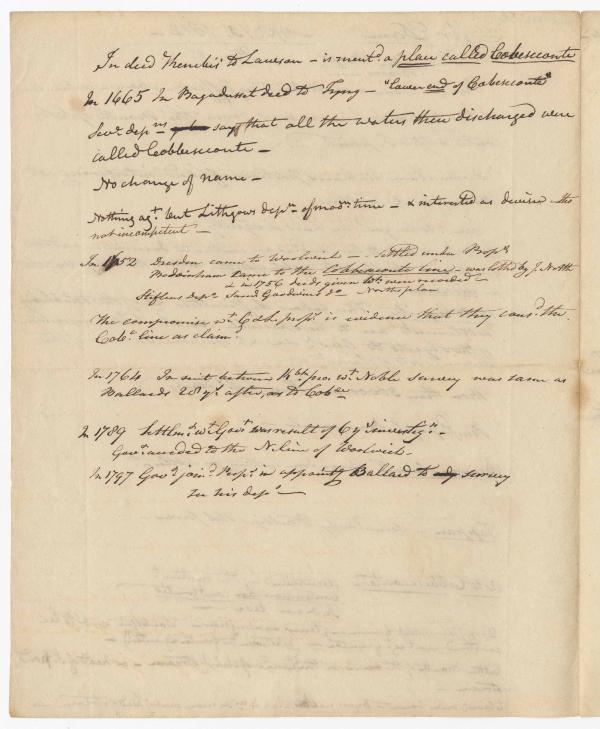 In deed Kenebis to Lawson – is ment.d a place called Cobesconte
In 1665 In Bagadusset deed to Tyng – "lower end of Cobesconte"
Sev.l dep.ns say that all the waters there discharged were
called Cobbesconte –
No change of name –
Nothing ag.t but Lithgows dep.n of mod.n time – & interested as devisee – tho
not incompetent. –
In 1752 Dresden came to Woolwich – settled under Prop.rs
came to the Cobbesconte line – was lotted by J. North
& in 1756 deeds given wh. were recorded –
dep.n Sam.l Goodwins do North's plan
The compromise w.t prop.rs is evidence that they cons.d the
Cob.e line as claim.d
In 1764 In suit between K. pro. w.t Noble survey was same as
Ballards 28 y.s after, as to Cob.e
In 1789 Settlm.t w.t Gov.t was result of 6 y.s investig.n –
Gov.t acceded to the N. line of Woolwich –
In 1797 Gov.t join.d Prop.rs in appoint.g Ballard to survey
See his dep.n –